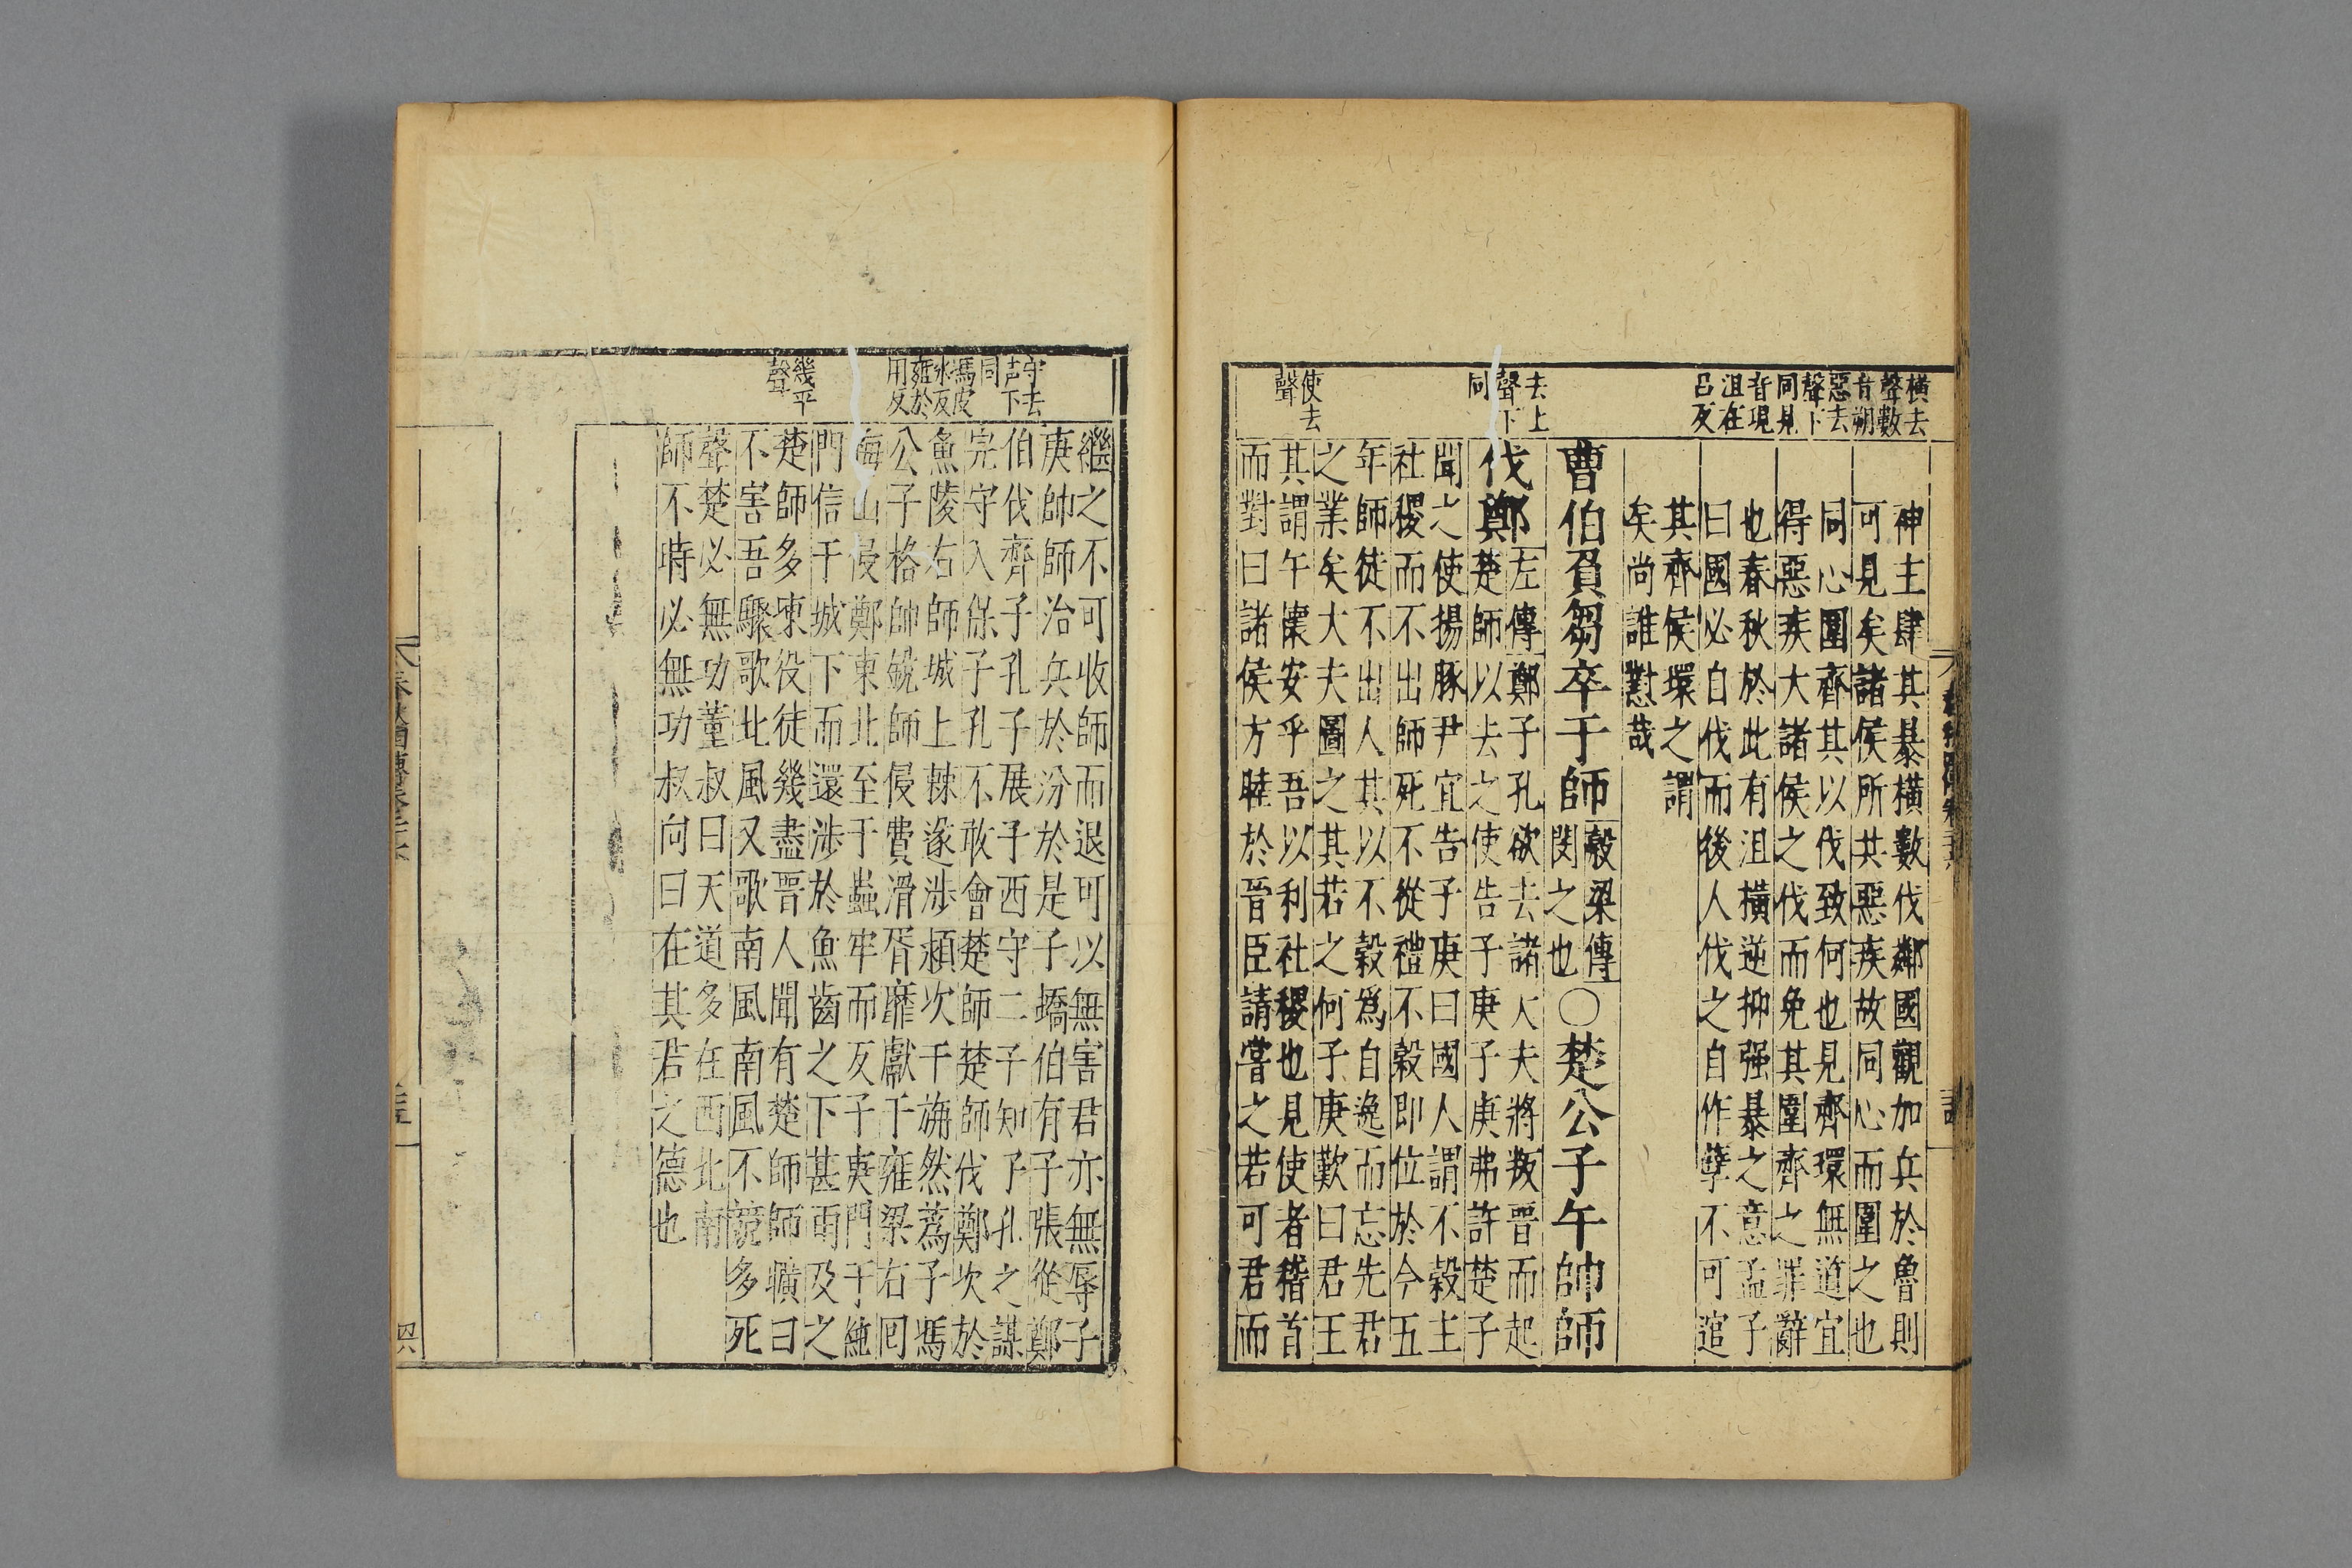 橫去
聲數
音朔
惡去
聲下
同見
音現
沮在
呂反
神主肆其暴橫數伐鄰國觀加兵於魯則
可見矣諸侯所共惡疾故同心而圍之也
同心圍齊其以伐致何也見齊環無道宜
得惡疾大諸侯之伐而免其圍齊之罪辭
也春秋於此有沮橫逆抑强暴之意孟子
曰國必自伐而後人伐之自作孽不可逭
其齊侯環之謂
矣尚誰懟哉
曹伯負芻卒于師
穀梁傳
閔之也
○楚公子午帥師
去上
聲下
同
伐鄭
左傳鄭子孔欲去諸大夫將叛晉而起
楚師以去之使告子庚子庚弗許楚子
聞之使揚豚尹宜告子庚曰國人謂不穀主
社稷而不出師死不從禮不穀即位於今五
年師徒不出人其以不穀爲自逸而忘先君
之業矣大夫圖之其若之何子庚歎曰君王
使去
聲
其謂午懷安乎吾以利社稷也見使者稽首
而對曰諸侯方睦於晉臣請嘗之若可君而
守去
声下
同
蔿皮
水反
雍於
用反
幾平
聲
繼之不可收師而退可以無害君亦無辱子
庚帥師治兵於汾於是子蟜伯有子張從鄭
伯伐齊子孔子展子西守二子知子孔之謀
完守入保子孔不敢會楚師楚師伐鄭次於
魚陵右師城上棘遂涉潁次于旃然蔿子馮
公子格帥銳師侵費滑胥靡獻于雍梁右回
梅山侵鄭東北至于蟲牢而反子庚門于純
門信于城下而還涉於魚齒之下甚雨及之
楚師多凍役徒幾盡晉人聞有楚師師曠曰
不害吾驟歌北風又歌南風南風不競多死
聲楚必無功董叔曰天道多在西北南
師不時必無功叔向曰在其君之德也